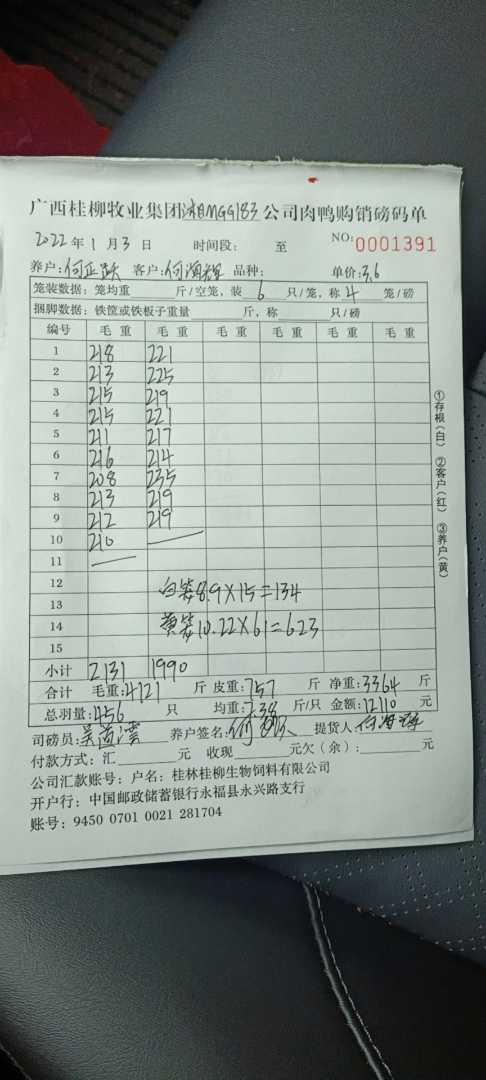 广西桂柳牧业集团湘MGG183公司肉鸭购销磅码单
2022年1月3日 时间段: 至 NO:0001391
养户:何正跃 客户:何海辉 品种: 单价:3.6
笼装数据: 笼均重 斤/空笼, 装 6 只/笼, 称 4 笼/磅
捆脚数据: 铁筐或铁板子重量 斤, 称 只/磅
编号 毛重 毛重 毛重 毛重 毛重 毛重
1 218 221
2 213 225
3 215 219
4 215 221
5 211 217
6 216 214
7 208 235
8 213 219
9 212 219
10 210 —
11 —
12
白笼8.9×15=134
13
14 黄笼10.22×61=623
15
小计 2131 1990
合计 毛重:4121 斤 皮重:757 斤 净重:3364 斤
总羽量:456 只 均重:7.38 斤/只 金额:12110 元
司磅员: 养户签名: 提货人
付款方式: 汇 元 收现 元欠(余): 元
公司汇款账号: 户名: 桂林桂柳生物饲料有限公司
开户行: 中国邮政储蓄银行永福县永兴路支行
账号: 9450 0701 0021 281704
①存根(白) ②客户(红) ③养户(黄)